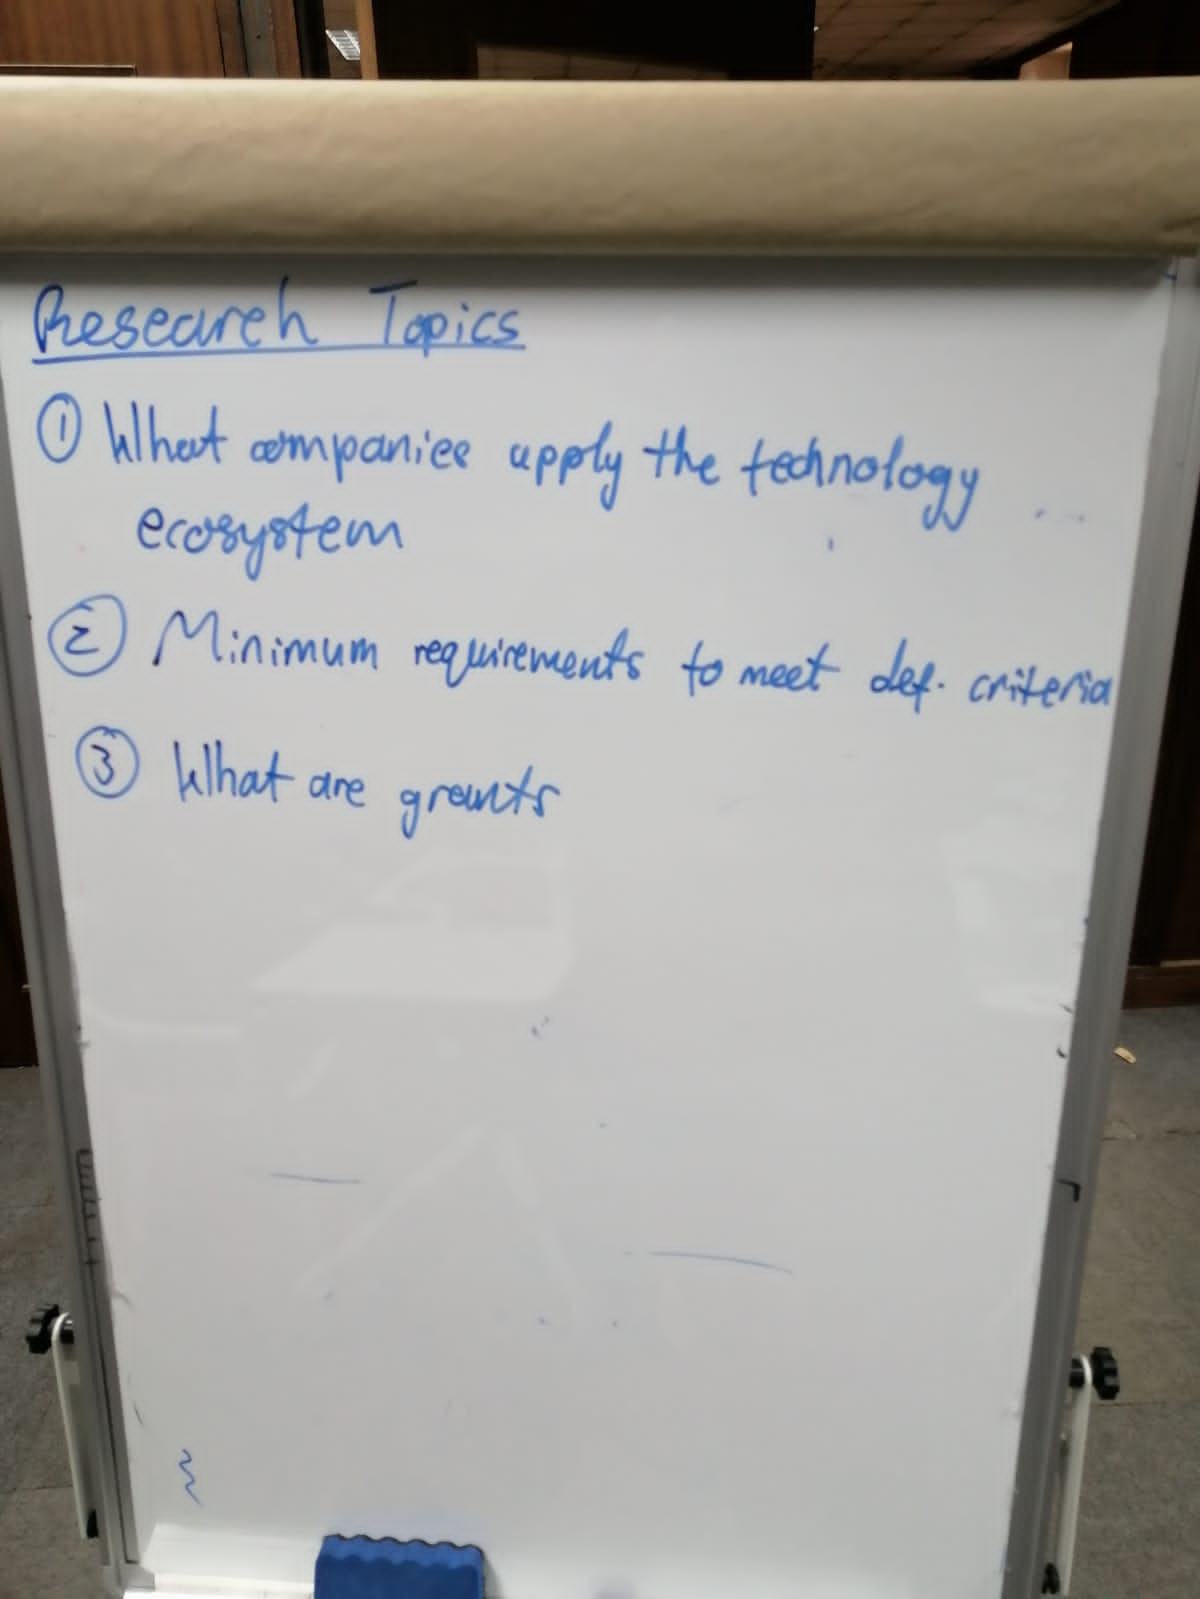 Research Topics
① What companies apply the technology
ecosystem
② Minimum requirements to meet def. criteria
③ What are grants